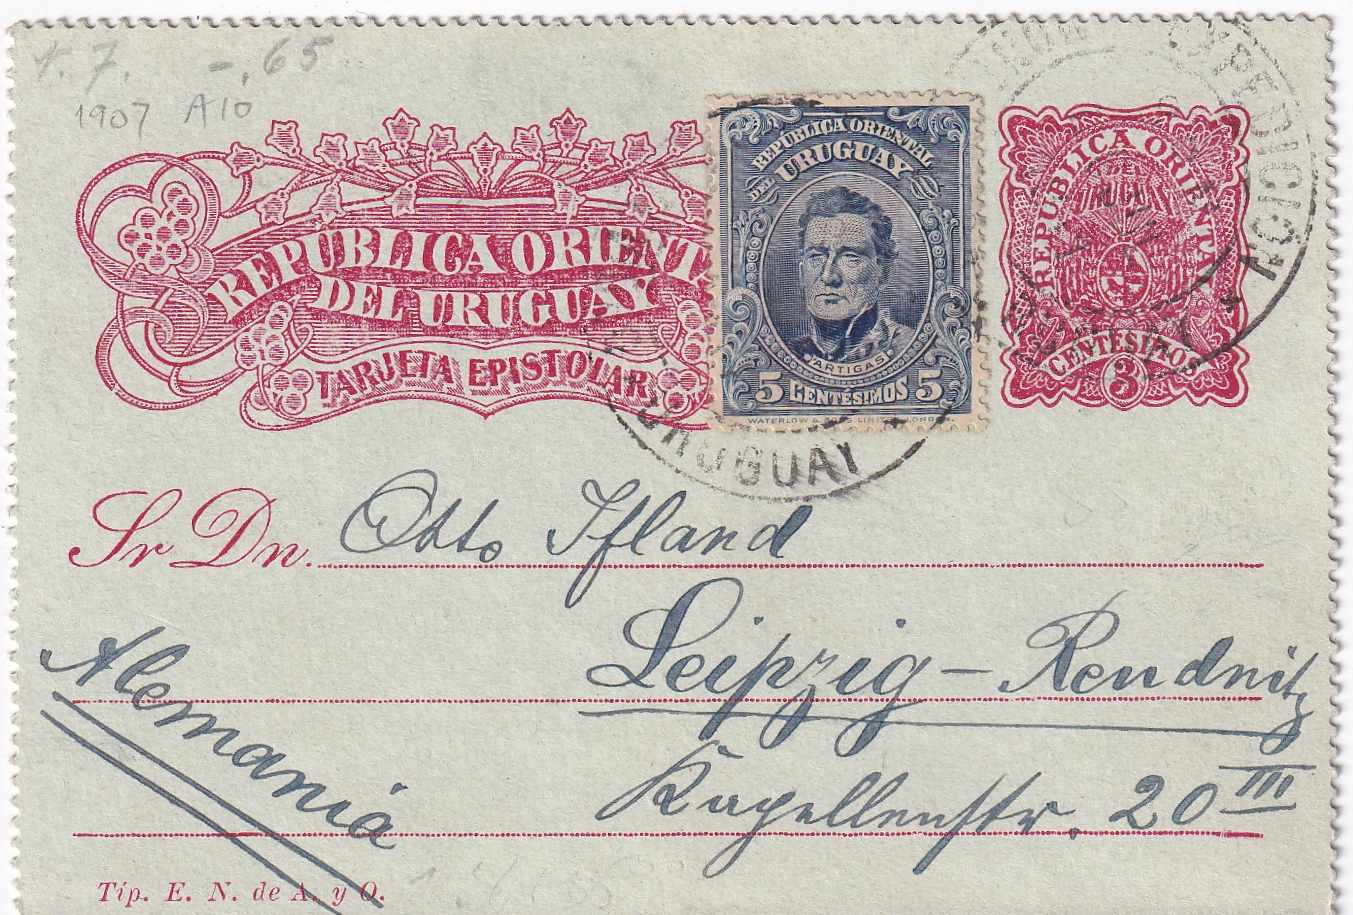 r. 7. -.65
1907 A10
REPUBLICA ORIENT
DEL URUGUAY
TARJETA EPISTOLAR
REPUBLICA ORIENTAL
DEL URUGUAY
ARTIGAS
5 CENTÉSIMOS 5
WATERLOW & SONS LIMITED, LONDON.
REPUBLICA ORIENTAL
CENTÉSIMOS
3
URUGUAY
Sr Dn. Otto Ifland
Leipzig - Reudnitz
Kapellenstr. 20 III
Alemania
Tip. E. N. de A. y O.